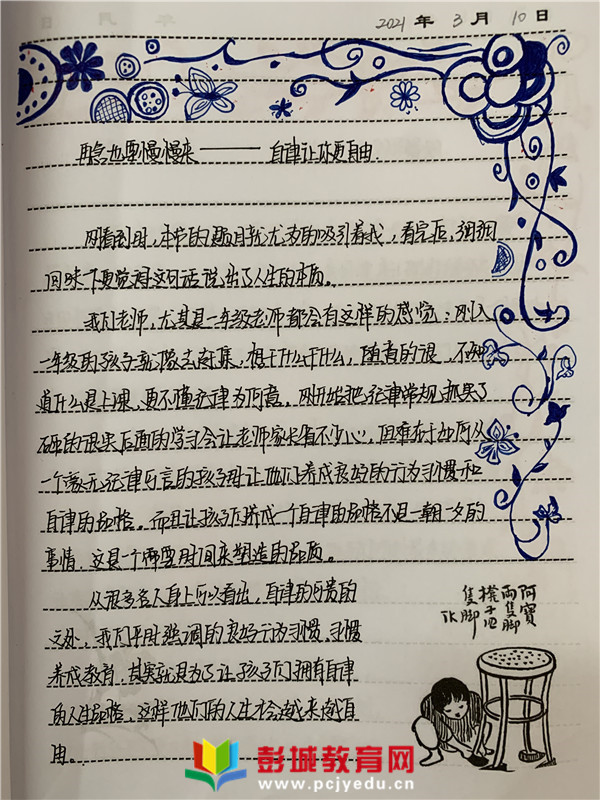 2021年 3月 10日
再急也要慢慢来——自律让你更自由.
刚看到时,本节的题目就尤为的吸引着我,看完后,细细
回味一下更觉得这句话说出了人生的本质。
我们老师,尤其是一年级老师都会有这样的感觉:刚入
一年级的孩子就像去赶集,想干什么干什么,随意的很,不知
道什么是上课,更不懂纪律为何意。刚开始把纪律常规抓实了
后面的学习会让老师家长省不少心,但难在于如何从
一个毫无纪律可言的孩子 让他们养成良好的行为习惯和
自律的品格。而且让孩子养成一个自律的品格不是一朝一夕的
事情.这是一个需要时间来塑造的品质。
从很多名人身上可以看出,自律的可贵的
之处,我们平时强调的良好行为习惯.习惯
养成教育,其实就是为了让孩子们拥有自律
的人生品格,这样他们的人生才会越来越自
由。
阿寶
兩隻脚
櫈子四
隻脚
TK
彭城教育网
www.pcjyedu.cn